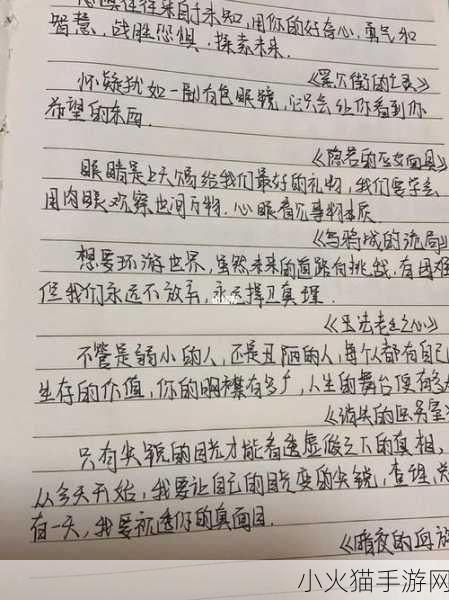 往往来自于未知,用你的好奇心,勇气和
智慧,战胜恐惧,探索未来.
怀疑犹如一副有色眼镜,它只会让你看到你
希望的东西.
《隐若的巫女面具》
眼睛是上天赐给我们最好的礼物,我们要学会
用肉眼观察世间万物,心眼看沉事物本质.
想要环游世界,虽然未来的道路有挑战,有困难
但我们永远不放弃,永远捍卫真理.
《玉法老之心》
不管是弱小的人,还是丑陋的人,每个人都有自己
生存的价值,你的胸襟有多广,人生的舞台便有多大
《消失的医务室
只有尖锐的目光才能看透虚假之下的真相,
从今天开始,我要让自己的目光变的尖锐,查理,总
有一天,我要看透你的真面目.
《暗夜的血族
小火猫手游网